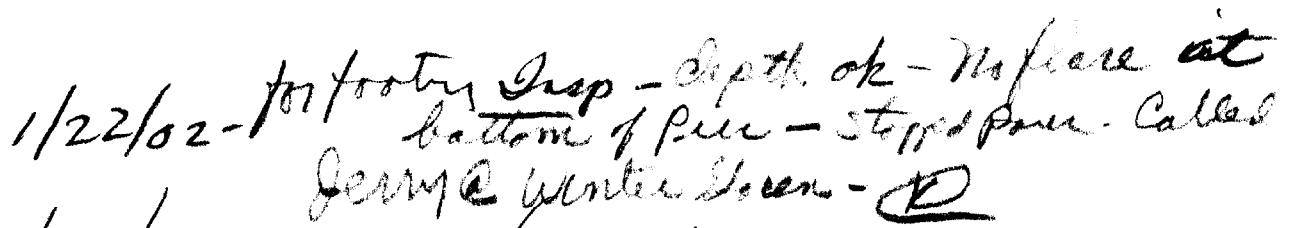 1/22/02 - for footing Insp - depth ok - No flare at
bottom of pier - Stopped pour. Called
Jerry @ Winter Green -